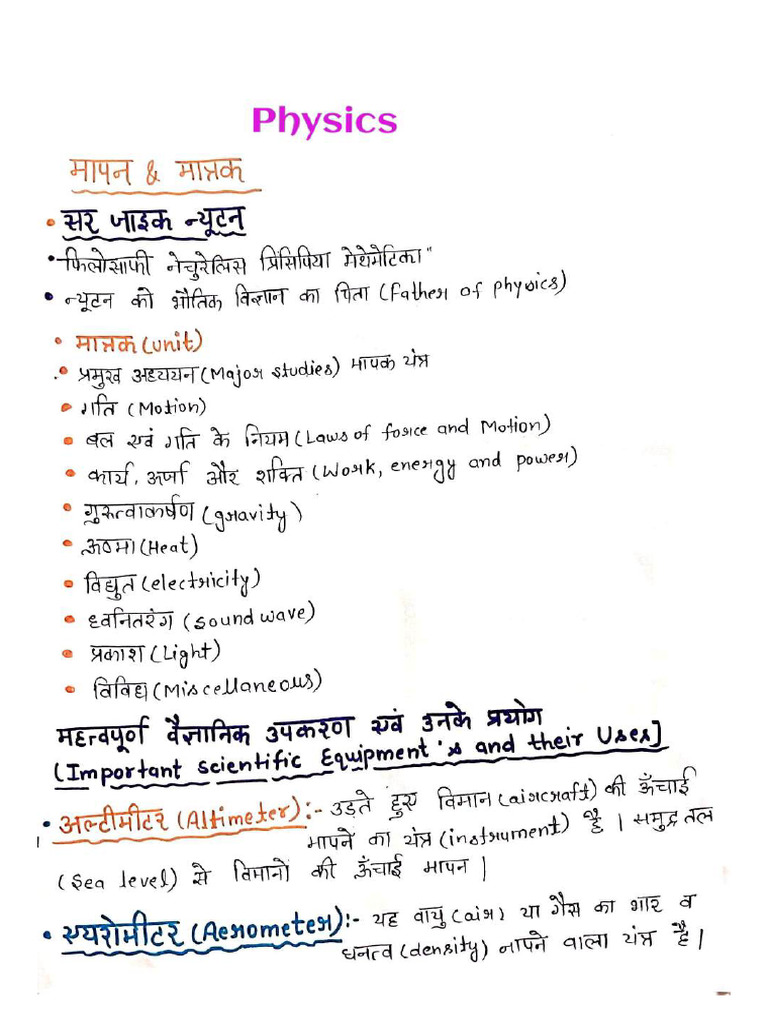 Physics
मापन & मात्रक
• सर जाइक न्यूटन
• "फिलोसाफी नेचुरेलिस प्रिंसिपिया मेथेमेटिका"
• न्यूटन को भौतिक विज्ञान का पिता (Father of physics)
• मात्रक (unit)
• प्रमुख अध्ययन (Major studies) मापक यंत्र
• गति (Motion)
• बल एवं गति के नियम (Laws of force and Motion)
• कार्य, अर्जा और शक्ति (Work, energy and power)
• गुरुत्वाकर्षण (gravity)
• ऊष्मा (Heat)
• विद्युत (electricity)
• ध्वनितरंग (sound wave)
• प्रकाश (Light)
• विविध (Miscellaneous)
महत्वपूर्ण वैज्ञानिक उपकरण एवं उनके प्रयोग
(Important scientific Equipment's and their Uses]
• अल्टीमीटर (Altimeter):- उड़ते हुए विमान (aircraft) की ऊँचाई
मापने का यंत्र (instrument) है। समुद्र तल
(Sea level) से विमानो की ऊँचाई मापन।
• एयरोमीटर (Aerometer):- यह वायु (air) या गैस का भार व
धनत्व (density) नापने वाला यंत्र है।